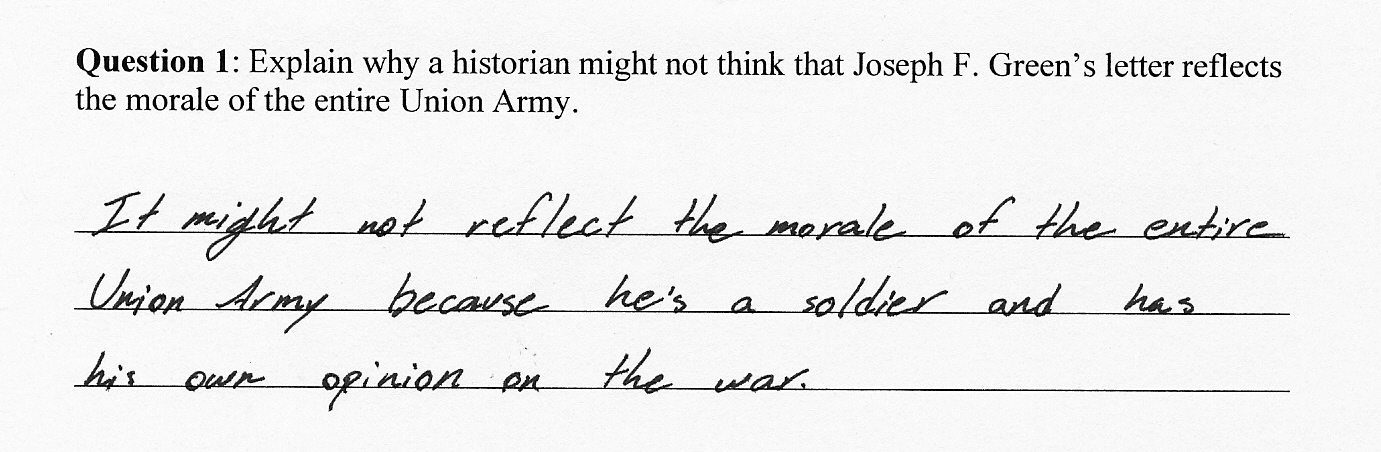 Question 1: Explain why a historian might not think that Joseph F. Green's letter reflects
the morale of the entire Union Army.
It might not reflect the morale of the entire
Union Army because he's a soldier and has
his own opinion on the war.